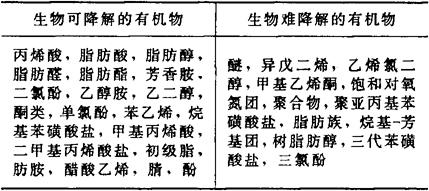 生物可降解的有机物
丙烯酸，脂肪酸，脂肪醇，
脂肪醛，脂肪酯，芳香胺，
二氯酚，乙醇胺，乙二醇，
酮类，单氯酚，苯乙烯，烷
基苯磺酸盐，甲基丙烯酸，
二甲基丙烯酸盐，初级脂
肪胺，醋酸乙烯，腈，酚
生物难降解的有机物
醚，异戊二烯，乙烯氯二
醇，甲基乙烯酮，饱和对氧
氮团，聚合物，聚亚丙基苯
磺酸盐，脂肪族，烷基-芳
基团，树脂肪醇，三代苯磺
酸盐，三氯酚